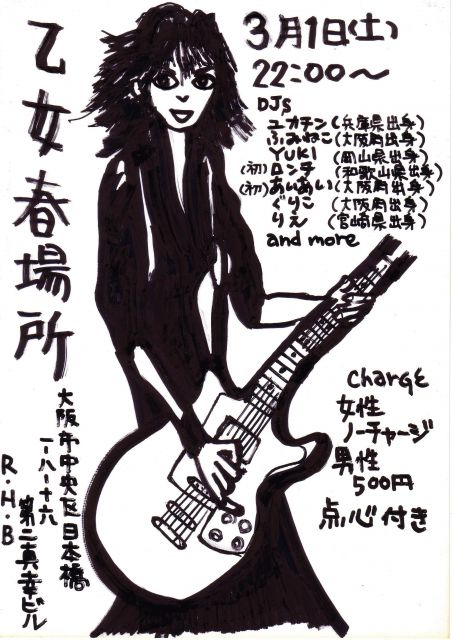 乙女春場所
3月1日(土)
22:00〜
DJs
ユカチン(兵庫県出身)
ふみねこ(大阪府出身)
YUKI(岡山県出身)
(初)ロンチ(和歌山県出身)
(初)あいあい(大阪府出身)
ぐりこ(大阪府出身)
りえ(宮崎県出身)
and more
charge
女性
ノーチャージ
男性
500円
点心付き
大阪市中央区日本橋
一-八-十六
第二真幸ビル
R.H.B